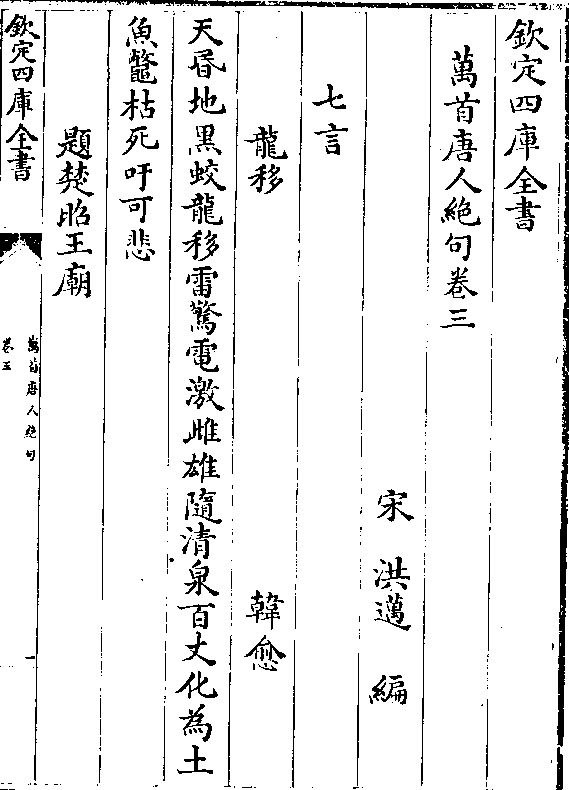 欽定四庫全書
萬首唐人絶句卷三
宋 洪邁 編
七言
龍移 韓愈
天昏地黑蛟龍移雷驚電激雌雄隨清泉百丈化為土
魚鼈枯死吁可悲
題楚昭王廟
欽定四庫全書
萬首唐人絶句
卷三
一